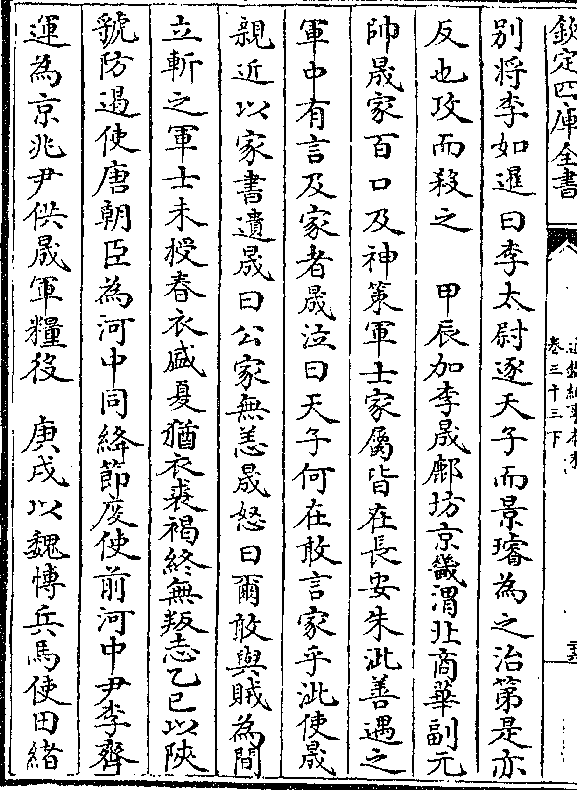 欽定四庫全書
卷三十三下
别將李如暹曰李太尉逐天子而景璿為之治第是亦
反也攻而殺之　甲辰加李晟鄜坊京畿渭北商華副元
帥晟家百口及神策軍士家屬皆在長安朱泚善遇之
軍中有言及家者晟泣曰天子何在敢言家乎泚使晟
親近以家書遺晟曰公家無恙晟怒曰爾敢與賊為間
立斬之軍士未授春衣盛夏猶衣裘褐終無叛志乙巳以陜
虢防遏使唐朝臣為河中同絳節度使前河中尹李齊
運為京兆尹供晟軍糧役　庚戌以魏博兵馬使田緒